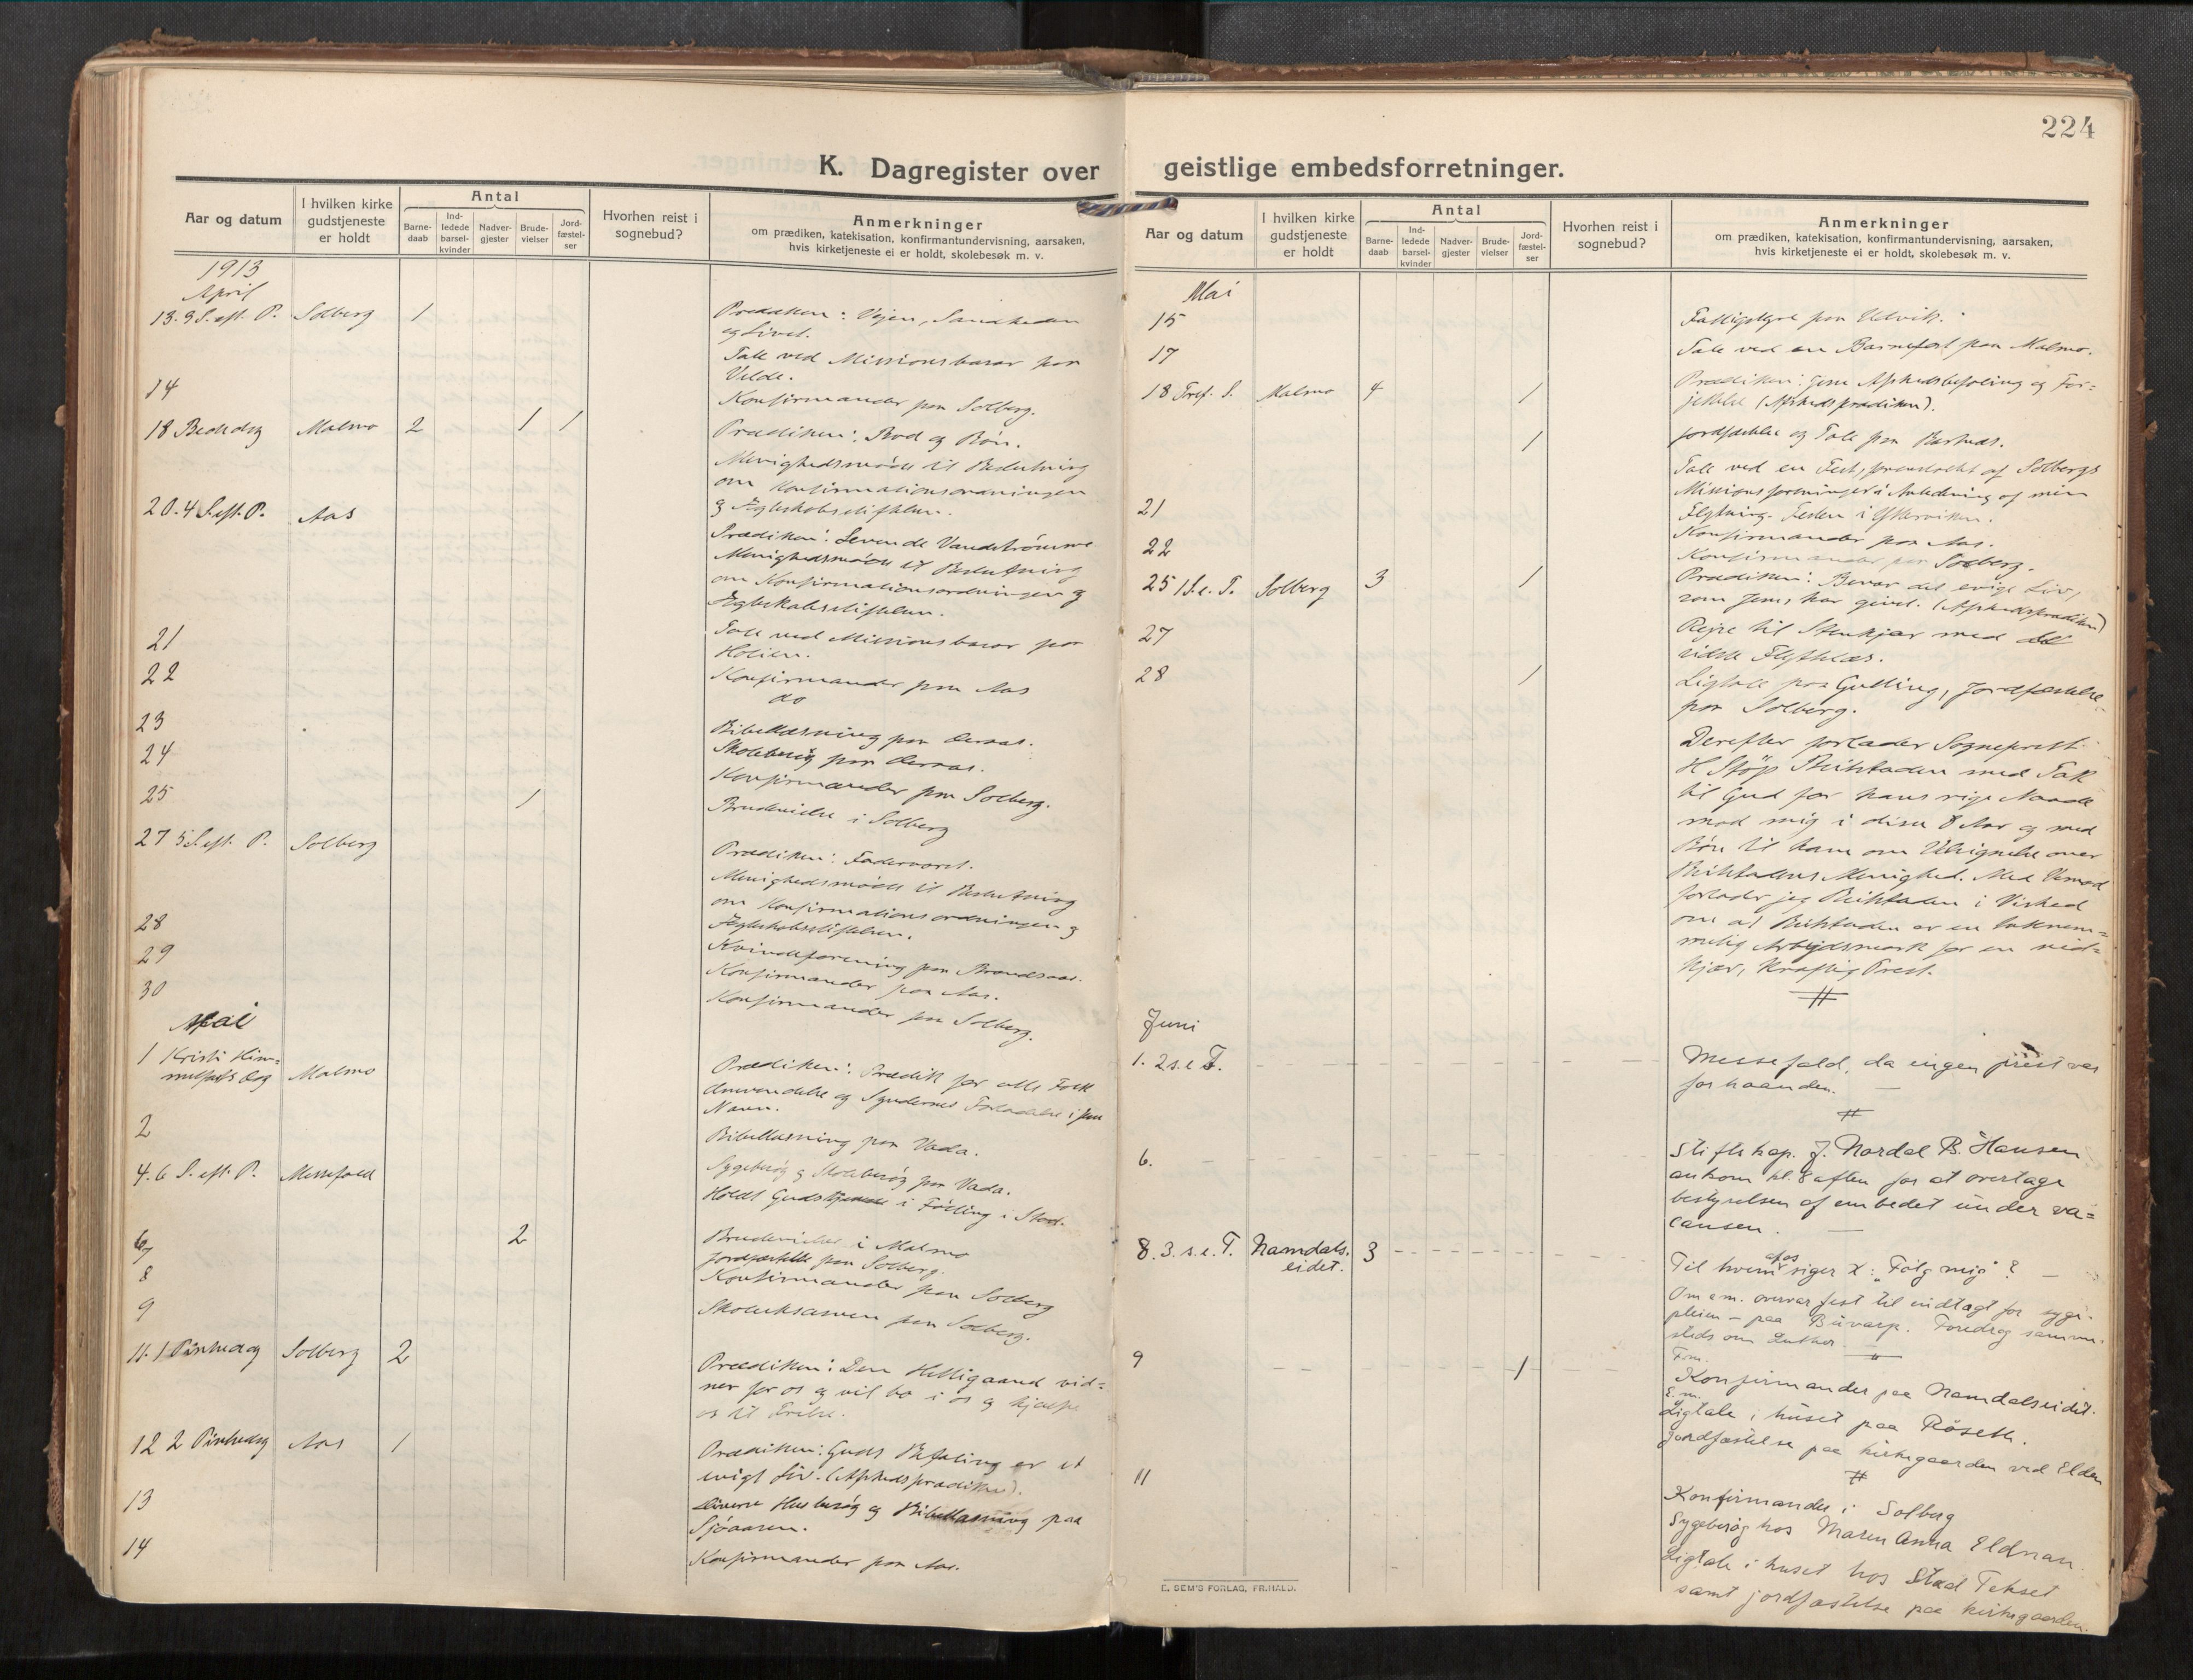 224
K. Dagregister over geistlige embedsforretninger.
Aar og datum
I hvilken kirke
gudstjeneste
er holdt
Antal
Barne-
daab
Ind-
ledede
barsel-
kvinder
Nadver-
gjester
Brude-
vielser
Jord-
fæstel-
ser
Hvorhen reist i
sognebud?
Anmerkninger
om prædiken, katekisation, konfirmantundervisning, aarsaken,
hvis kirketjeneste ei er holdt, skolebesøk m. v.
1913
April
13. 3 S. eft. P. Solberg 1 Prædiken: Vejen, Sandheden
og Livet.
Tale ved Missionsbasar paa
Velde.
14 Konfirmander paa Solberg.
18 Bededag Malmo 2 1 1 Prædiken: Bod og Bøn.
Menighedsmøde til Beslutning
om Konfirmationsordningen
og Ægteskabsstiftelsen.
20. 4 S. eft. P. Aas Prædiken: Levende Vandstrømme
Menighedsmøde til Beslutning
om Konfirmationsordningen og
Ægteskabsstiftelsen.
21 Tale ved Missionsbasar paa
Holien.
22 Konfirmander paa Aas
do
23 Bibellæsning paa
24 Skolebesøg paa
Konfirmander paa Solberg.
25 1 Brudevielse i Solberg
27 5 S. eft. P. Solberg Prædiken: Fadervoret.
Menighedsmøde til Beslutning
om Konfirmationsordningen og
Ægteskabsstiftelsen.
28 Kvindeforening paa
29 Konfirmander paa Aas.
30 Konfirmander paa Solberg.
Mai
1 Kristi Him=
melfarts dag Malmo Prædiken: Prædik for alle Folk
Omvendelse og Syndernes Forladelse i
Navn.
2 Bibellæsning paa Vada.
Sygebesøg og Skolebesøg paa Vada.
4. 6 S. eft. P. Messefald Holdt Gudstjeneste i Følling i Stod.
6 2 Brudevielser i Malmo
7 Jordfæstelse paa Solberg.
8 Konfirmander paa Solberg
9 Skoleeksamen paa Solberg.
11. 1 Pintsedag Solberg 2 Prædiken: Den Helligaand vid=
ner for os og vil bo i os og hjælpe
os til Frelse.
12 2 Pintsedag Aas 1 Prædiken: Guds Befaling er et
evigt Liv. (Afskedsprædiken).
13 Diverse Husbesøg og Bibellæsning paa
Sjøaasen.
14 Konfirmander paa Aas.
Aar og datum
I hvilken kirke
gudstjeneste
er holdt
Antal
Barne-
daab
Ind-
ledede
barsel-
kvinder
Nadver-
gjester
Brude-
vielser
Jord-
fæstel-
ser
Hvorhen reist i
sognebud?
Anmerkninger
om prædiken, katekisation, konfirmantundervisning, aarsaken,
hvis kirketjeneste ei er holdt, skolebesøk m. v.
Mai
15 Fattigstyre paa Utvik.
17 Tale ved en Barnefest paa Malmo.
18 Tref. S. Malmo 4 1 Prædiken: Jesu Afskedsbefaling og For=
jættelse (Afskedsprædiken).
1 Jordfæstelse og Tale paa
Tale ved en Fest, foranstaltet af Solbergs
Missionsforeninger i Anledning af min
21 Flytning. Festen i
Konfirmander paa Aas.
22 Konfirmander paa Solberg.
25 1 S. e. T. Solberg 3 1 Prædiken: Bevar det evige Liv,
som Jesus har givet. (Afskedsprædiken)
27 Rejse til Stenkjær med det
sidste Flyttelæs.
28 1 Ligtale paa Gutling, Jordfæstelse
paa Solberg.
Derefter forlader Sogneprest
H Sjøp Beitstaden med Tak
til Gud for hans rige Naade
mod mig i disse 8 Aar og med
Bøn til ham om Velsignelse over
Beitstadens Menighed. Med Vemod
forlader jeg Beitstaden i Vished
om at Beitstaden er en taknem=
melig Arbejdsmark for en nid=
kjær, kraftig Prest.
Juni
1. 2 s. e T. Messefald, da ingen prest var
for haanden.
6. Stiftskap. J. Nordal B. Hansen
ankom kl. 8 aften for at overtage
bestyrelsen af embedet under va=
cansen.
8. 3. s. e. T. Namdals.
eidet. 3 Til hvem af os siger X: "Følg mig"?
Om e.m. overvar fest til indtægt for syge-
pleien – paa Buvarp. Foredrag samme-
steds om Luther.
9 1 Fm.
Konfirmander paa Namdalseidet.
E. m.
Ligtale i huset paa Røseth.
Jordfæstelse paa kirkegaarden ved Elden
11 Konfirmander i Solberg
Sygebesøg hos Maren Anna Eldnan
Ligtale i huset hos Stad Tekset
samt jordfæstelse paa kirkegaarden.
E. SEM'S FORLAG, FR.HALD.